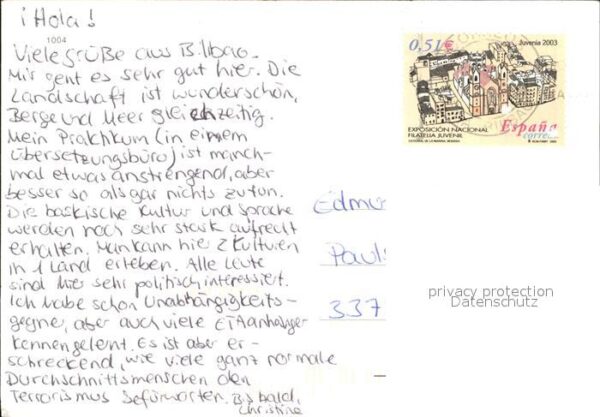 ¡Hola!
1004
Viele Grüße aus Bilbao.
Mir geht es sehr gut hier. Die
Landschaft ist wunderschön,
Berge und Meer gleichzeitig.
Mein Praktikum (in einem
Übersetzungsbüro) ist manch-
mal etwas anstrengend, aber
besser so als gar nichts zu tun.
Die baskische Kultur und Sprache
werden noch sehr stark aufrecht
erhalten. Man kann hier 2 Kulturen
in 1 Land erleben. Alle Leute
sind hier sehr politisch interessiert.
Ich habe schon Unabhängigkeits-
gegner, aber auch viele ETA anhänger
kennengelernt. Es ist aber er-
schreckend, wie viele ganz normale
Durchschnittsmenschen den
Terrorismus befürworten. Bis bald,
Christine
0,51€
Juvenia 2003
EXPOSICIÓN NACIONAL
FILATELIA JUVENIL
España
correos
Edmu
Pauls
337
privacy protection
Datenschutz